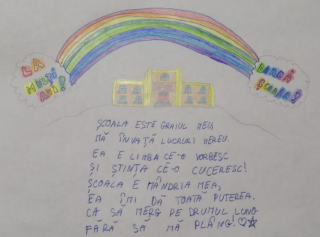 LA
MULȚI
ANI!
DRAGĂ
ȘCOALĂ!
ȘCOALA ESTE GRAIUL MEU
MĂ ÎNVAȚĂ LUCRURI MEREU.
EA E LIMBA CE-O VORBESC
ȘI ȘTIINȚA CE-O CUCERESC!
ȘCOALA E MÂNDRIA MEA,
EA ÎMI DĂ TOATĂ PUTEREA.
CA SĂ MERG PE DRUMUL LUNG
FĂRĂ SĂ MĂ PLÂNG.